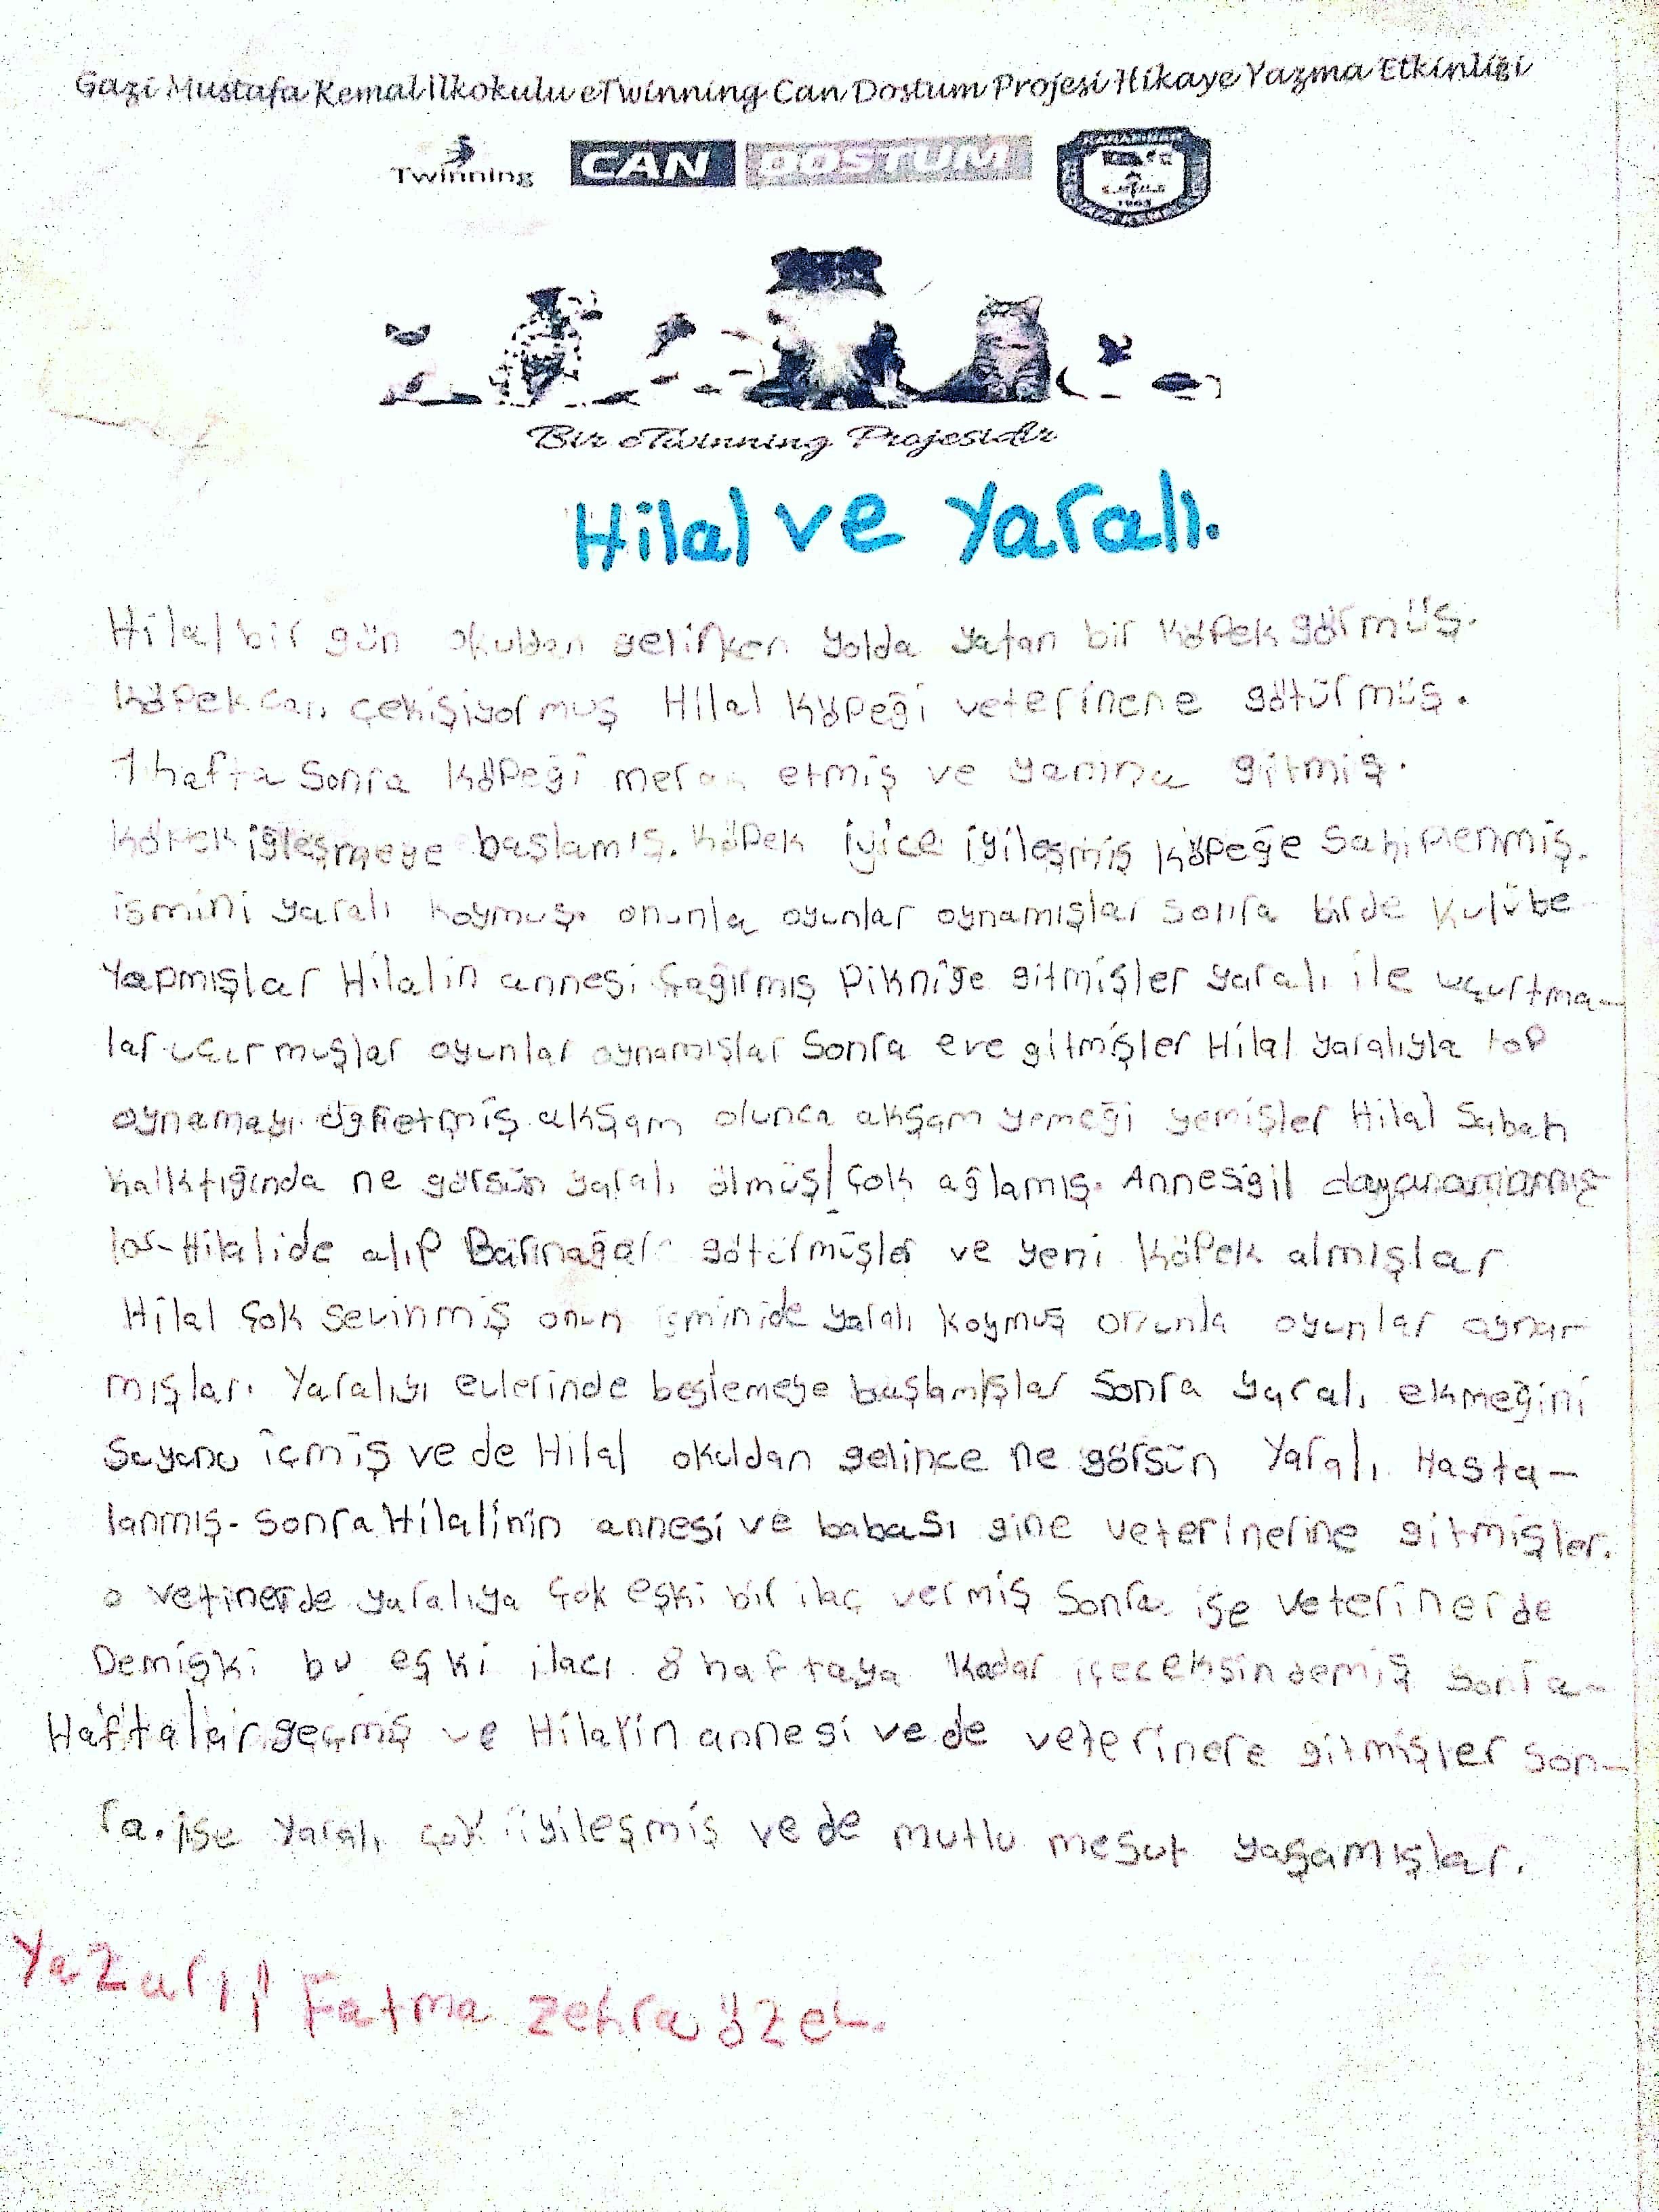 Gazi Mustafa Kemal İlkokulu eTwinning Can Dostum Projesi Hikaye Yazma Etkinliği
Twinning CAN DOSTUM
Bir eTwinning Projesidir
Hilal ve Yaralı.
Hilal bir gün okuldan gelirken yolda yatan bir köpek görmüş.
Köpek can çekişiyormuş Hilal Köpeği veterinene götürmüş.
1 hafta sonra köpeği merak etmiş ve yanına gitmiş.
köpek iğleşmeye başlamış. köpek iyice iyileşmiş köpeğe sahiplenmiş.
ismini yaralı koymuş. onunla oyunlar oynamışlar sonra birde kulübe
Yapmışlar Hilalin annesi çağırmış pikniğe gitmişler yaralı ile uçurtma-
lar uçurmuşlar oyunlar oynamışlar sonra eve gitmişler Hilal yaralıyla top
oynamayı öğretmiş akşam olunca akşam yemeği yemişler Hilal Sabah
kalktığında ne görsün yaralı ölmüş! çok ağlamış. Annesigil dayanamamış
lar-Hilalide alıp götürmüşler ve yeni köpek almışlar
Hilal çok sevinmiş onun isminide yaralı koymuş onunla oyunlar oyna-
mışlar. Yaralıyı evlerinde beslemeye başlamışlar sonra yaralı ekmeğini
Suyunu içmiş ve de Hilal okuldan gelince ne görsün Yaralı Hasta-
lanmış. sonra Hilalinin annesi ve babası gine veterinerine gitmişler.
o vetinerde yaralıya çok eşki bir ilaç vermiş sonra işe veterinerde
Demişki bu eşki ilacı 8 haftaya kadar içeceksin demiş sonra-
Haftalar geçmiş ve Hilalin annesi ve de veterinere gitmişler son-
ra. ise yaralı çok iyileşmiş ve de mutlu mesut yaşamışlar.
Yazarı; Fatma Zehra özel.